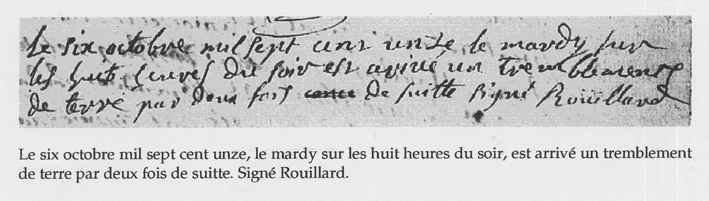 Le six octobre mil sept cent unze le mardy sur
les huit heures du soir est arivé un tremblement
de terre par deux fois de suitte signé Rouillard
Le six octobre mil sept cent unze, le mardy sur les huit heures du soir, est arrivé un tremblement
de terre par deux fois de suitte. Signé Rouillard.